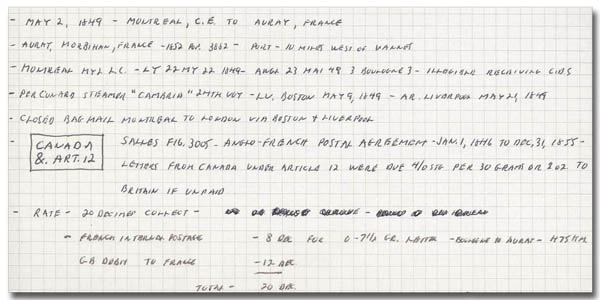 - MAY 2, 1849 - MONTREAL, C.E. TO AURAY, FRANCE
- AURAY, MORBIHAN, FRANCE - 1852 POP. 3862 - PORT - 10 MILES WEST OF VANNES
- MONTREAL MY2 L.C. - LY 22 MY 22 1849 - ANGL 23 MAI 49 3 BOULOGNE 3 - ILLEGIBLE RECEIVING CDS
- PER CUNARD STEAMER "CAMBRIA" 24TH VOY - LV. BOSTON MAY 9, 1849 - AR. LIVERPOOL MAY 21, 1849
- CLOSED BAG MAIL MONTREAL TO LONDON VIA BOSTON & LIVERPOOL
- CANADA & ART. 12 SALLES FIG. 3005 - ANGLO-FRENCH POSTAL AGREEMENT - JAN. 1, 1846 TO DEC. 31, 1855 -
LETTERS FROM CANADA UNDER ARTICLE 12 WERE DUE 4/0 STG PER 30 GRAMS OR 1 OZ. TO
BRITAIN IF UNPAID
- RATE - 20 DECIMES COLLECT -
- FRENCH INTERNAL POSTAGE - 8 DEC FOR 0-7 1/2 GR. LETTER - BOULOGNE TO AURAY - 475 KM.
GB DEBIT TO FRANCE - 12 DEC.
TOTAL - 20 DEC.